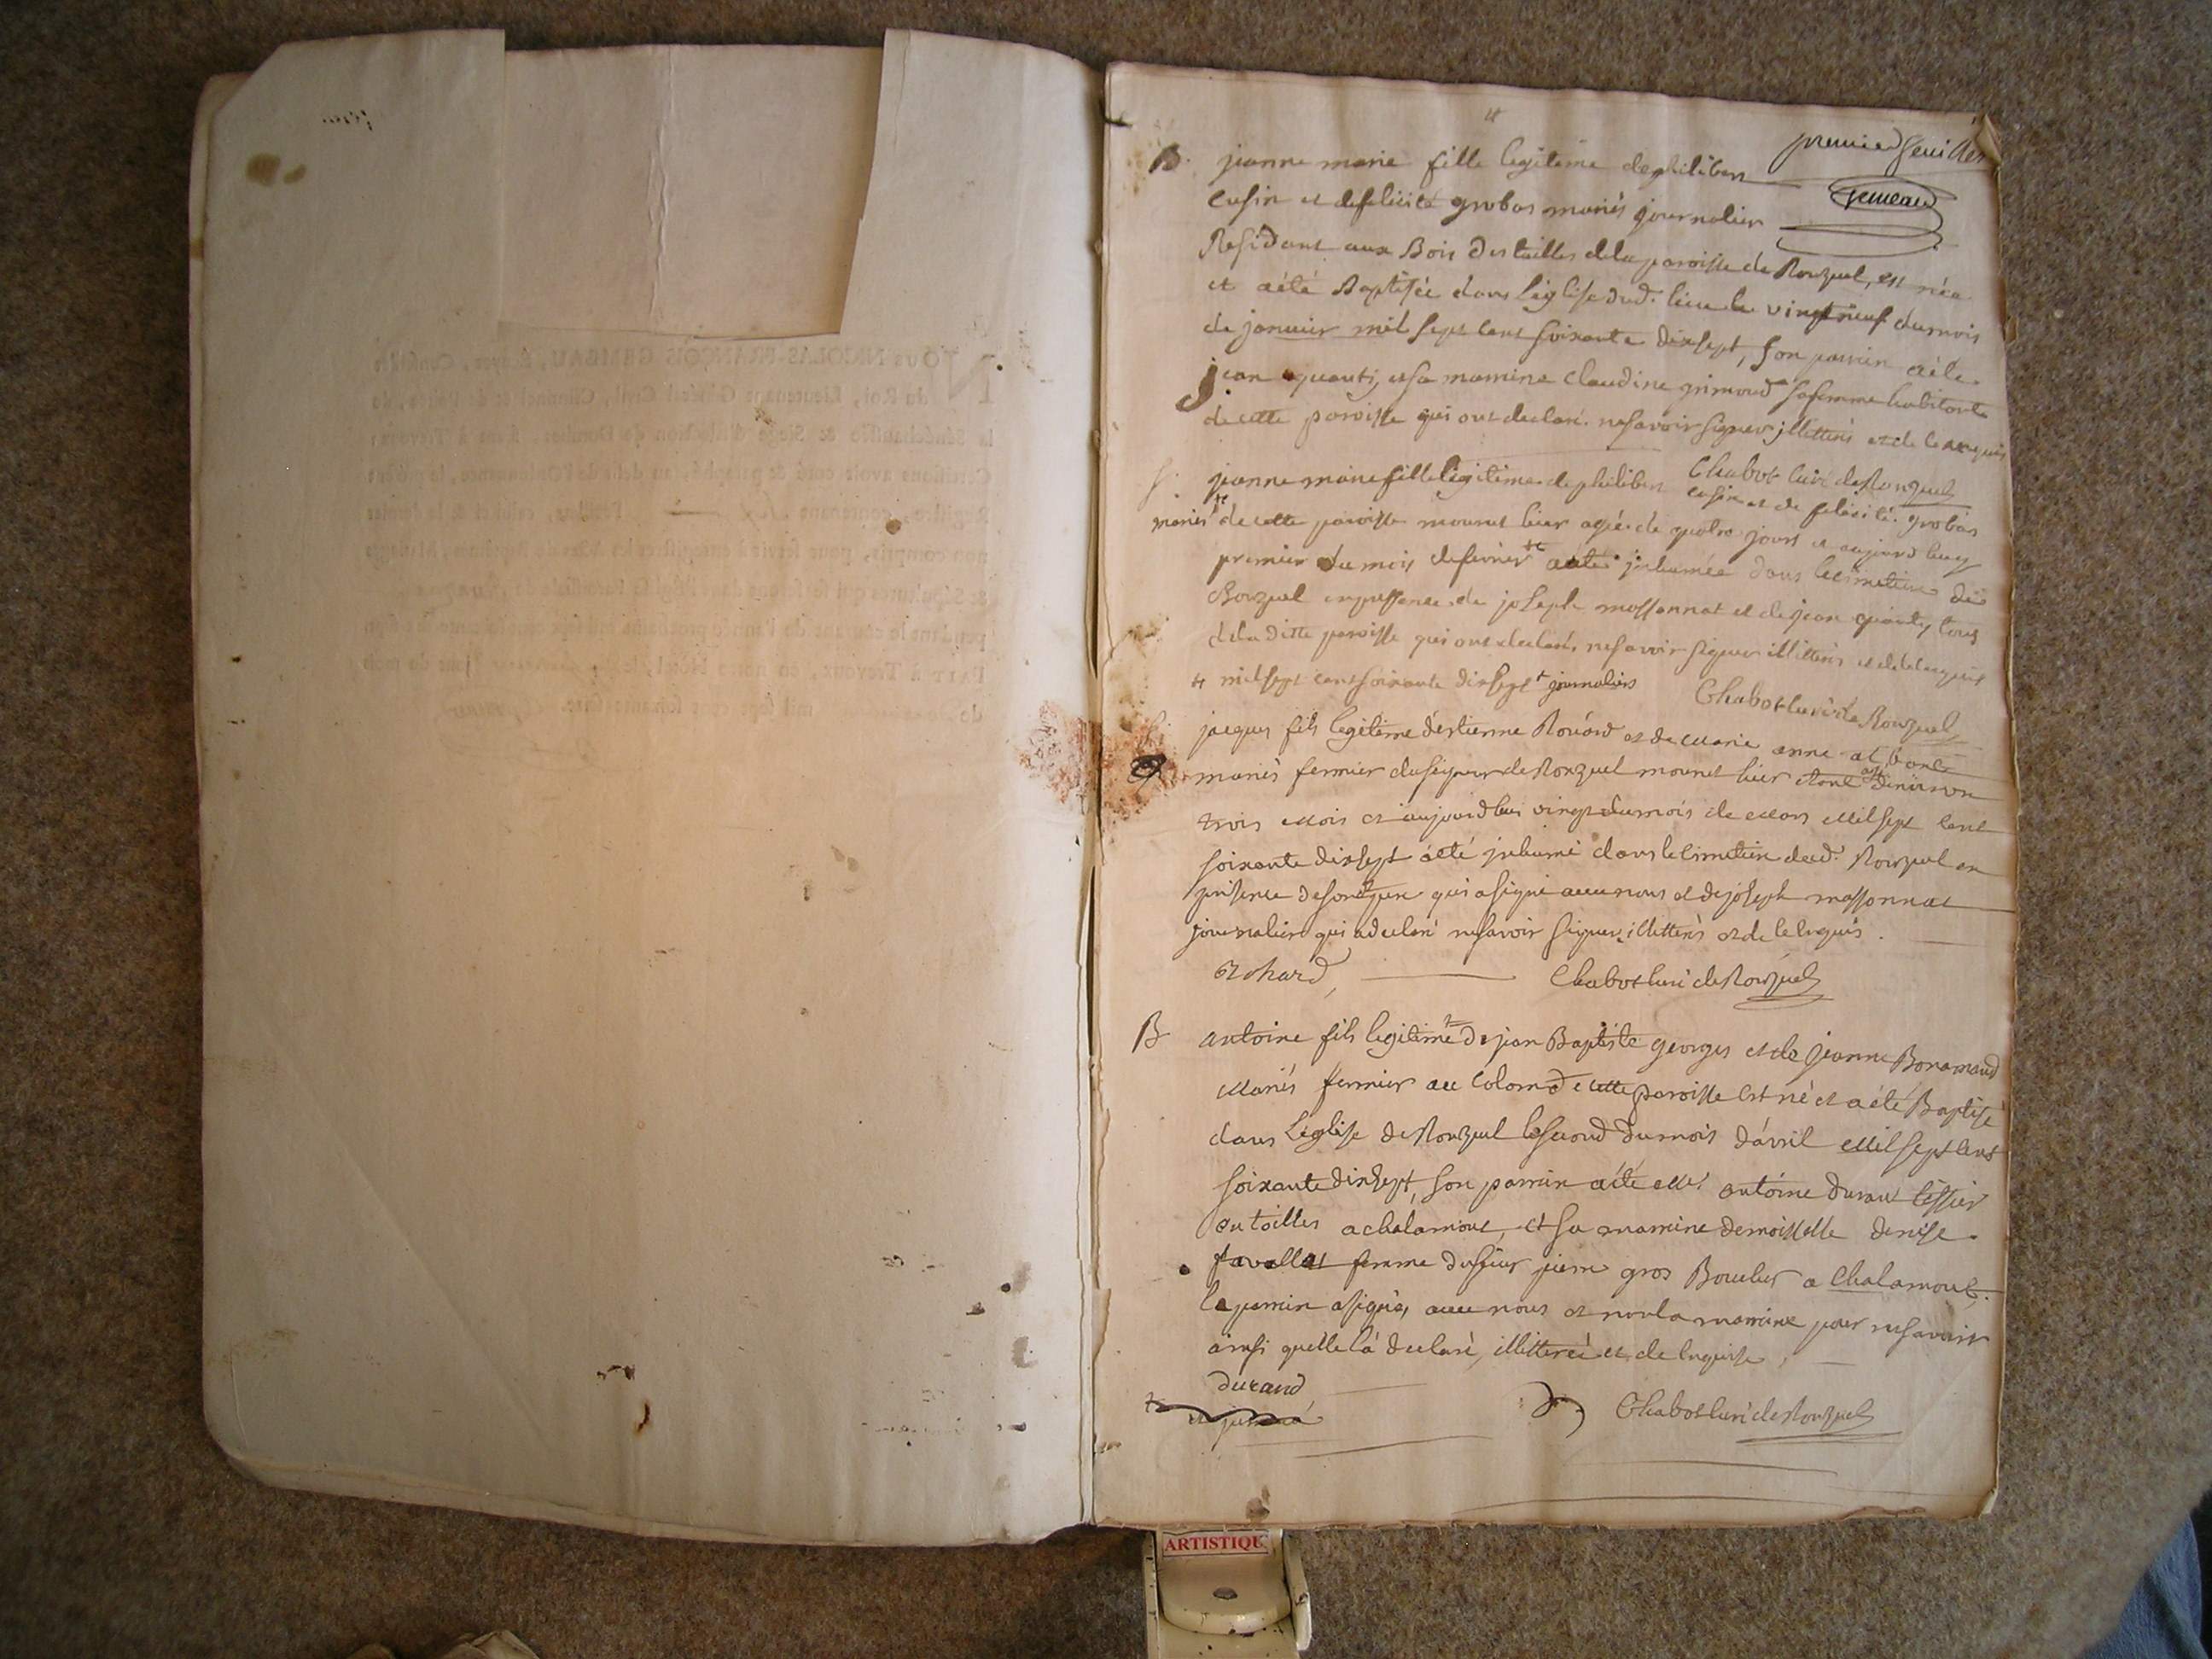 premier feuillet
B. jeanne marie fille legitime de philibert
cusin et de felicité grobas mariés journalier
Residant aux Bois des tailles de la paroisse de Ronzuel, est née
et a été Baptisée dans L'église dud. lieu le vingt neuf du mois
de janvier mil sept cent soixante dix sept, son parrin a été
jean quanti, et sa marrine claudine grimaud sa femme habitants
de cette paroisse qui ont declaré ne savoir signer illitterés et de ce requis
Chabot curé de Ronzuel
S. jeanne marie fille legitime de philibert cusin et de felicité grobas
mariés de cette paroisse mourut hier agée de quatre jours et aujourd huy
premier du mois de fevrier a été inhumée dans le cimetiere de
Ronzuel en presence de joseph massonnat et de jean quanty tous
de la ditte paroisse qui ont declaré ne savoir signer illitterés et de ce requis
mil sept cent soixante dix sept journaliers
Chabot curé de Ronzuel
S. jacques fils legitime d'estienne Roüard et de marie anne
mariés fermier du seigneur de Ronzuel mourut hier agé d'environ
trois mois et aujourd'hui vingt du mois de mars mil sept cent
soixante dix sept a été inhumé dans le cimetiere dud. Ronzuel en
presence de son pere qui a signé avec nous et de joseph massonnat
journalier qui a declaré ne savoir signer, illitterés et de ce requis.
Rohard, Chabot curé de Ronzuel
B antoine fils legitime de jean Baptiste georges et de jeanne Bonamaud
mariés fermier au colom de cette paroisse est né et a été Baptisé
dans L'église de Ronzuel le second du mois d'avril mil sept cent
soixante dix sept, son parrin a été antoine durand tessier
en toilles a chalamont, et sa marrine demoiselle denise
favellet femme du sieur pierre gros Boucher a chalamont,
le parrin a signé, avec nous et non la marrine pour ne savoir
ainsi qu'elle l'a declaré, illitterée et de ce requise,
durand
Chabot curé de Ronzuel
NOUS NICOLAS-FRANÇOIS GEMEAU, Ecuyer, Conseiller
du Roi, Lieutenant Général Civil, Criminel et de Police, de
la Sénéchaussée & Siege d'election de Dombes, séant à Trevoux;
Certifions avoir coté & paraphé, au desir de l'Ordonnance, le présent
Registre, contenant feuillets, celui-ci & le dernier
non compris, pour servir à enregistrer les Actes de Baptêmes, Mariages
& Sépultures qui se feront dans l'Eglise Paroissiale de
pendant le courant de l'année prochaine
FAIT à Trevoux, en notre Hôtel, le jour du mois
ARTISTIQU